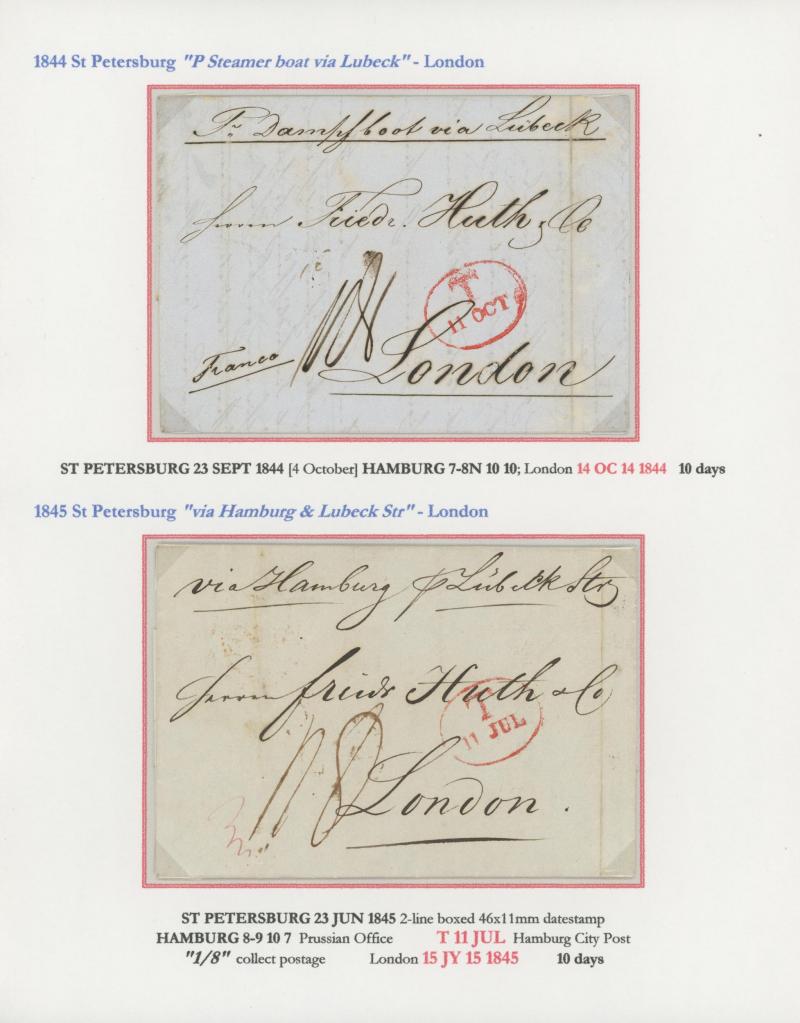 1844 St Petersburg "P Steamer boat via Lubeck" - London
Pr Dampfboot via Lübeck
Herrn Friedr. Huth & Co
T
11 OCT
1/8
Franco
London
ST PETERSBURG 23 SEPT 1844 [4 October] HAMBURG 7-8N 10 10; London 14 OC 14 1844 10 days
1845 St Petersburg "via Hamburg & Lubeck Str" - London
via Hamburg p Lübeck Str
Herrn Friedr Huth & Co
T
11 JUL
1/8
London.
ST PETERSBURG 23 JUN 1845 2-line boxed 46x11mm datestamp
HAMBURG 8-9 10 7 Prussian Office T 11 JUL Hamburg City Post
"1/8" collect postage London 15 JY 15 1845 10 days